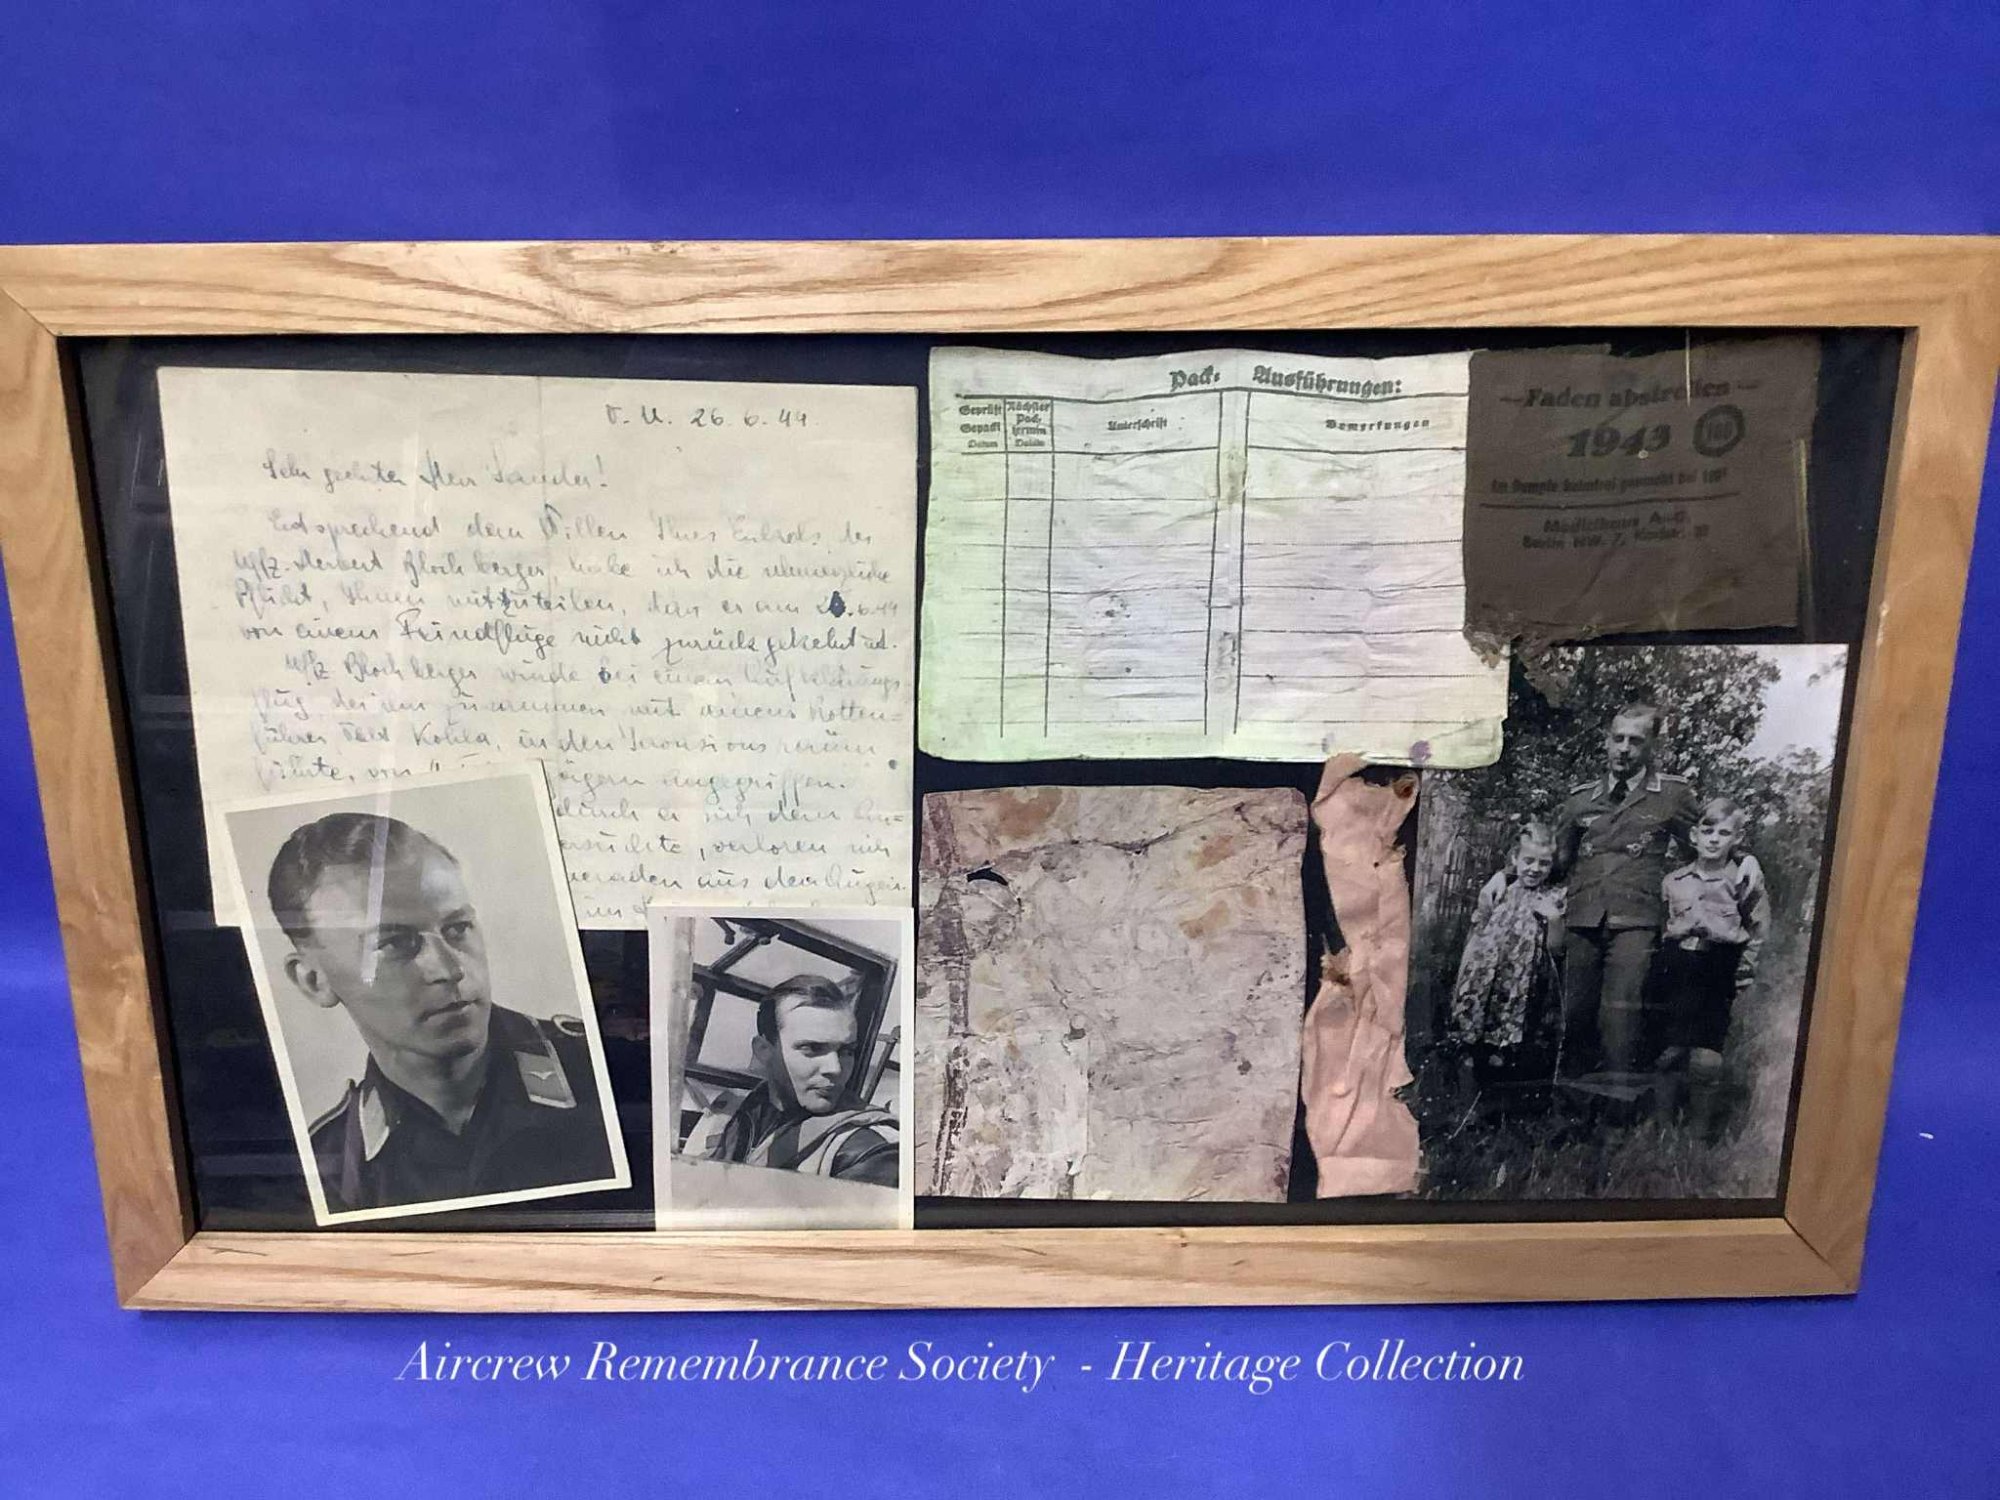 O. U. 26. 6. 44.
Sehr geehrter Herr Sander!
Entsprechend dem Willen Ihres Enkels, des
Uffz. Herbert Blochberger, habe ich die schmerzliche
Pflicht, Ihnen mitzuteilen, dass er am .6.44
von einem Feindfluge nicht zurückgekehrt ist.
Uffz Blochberger wurde bei einem Aufklärungs-
flug, der ihn zusammen mit seinem Rotten=
führer, Kotila, in den Invasionsraum
führte, von Jägern angegriffen.
durch er sich dem An=
versuchte, verloren wir
Kameraden aus den Augen.
im
Pack= Ausführungen:
Geprüft
Gepackt
Datum
Nächster
Pack=
termin
Datum
Unterschrift
Bemerkungen
—Faden abstreifen—
1943
Im Dampfe keimfrei gemacht bei
Berlin NW. 7,
Aircrew Remembrance Society - Heritage Collection